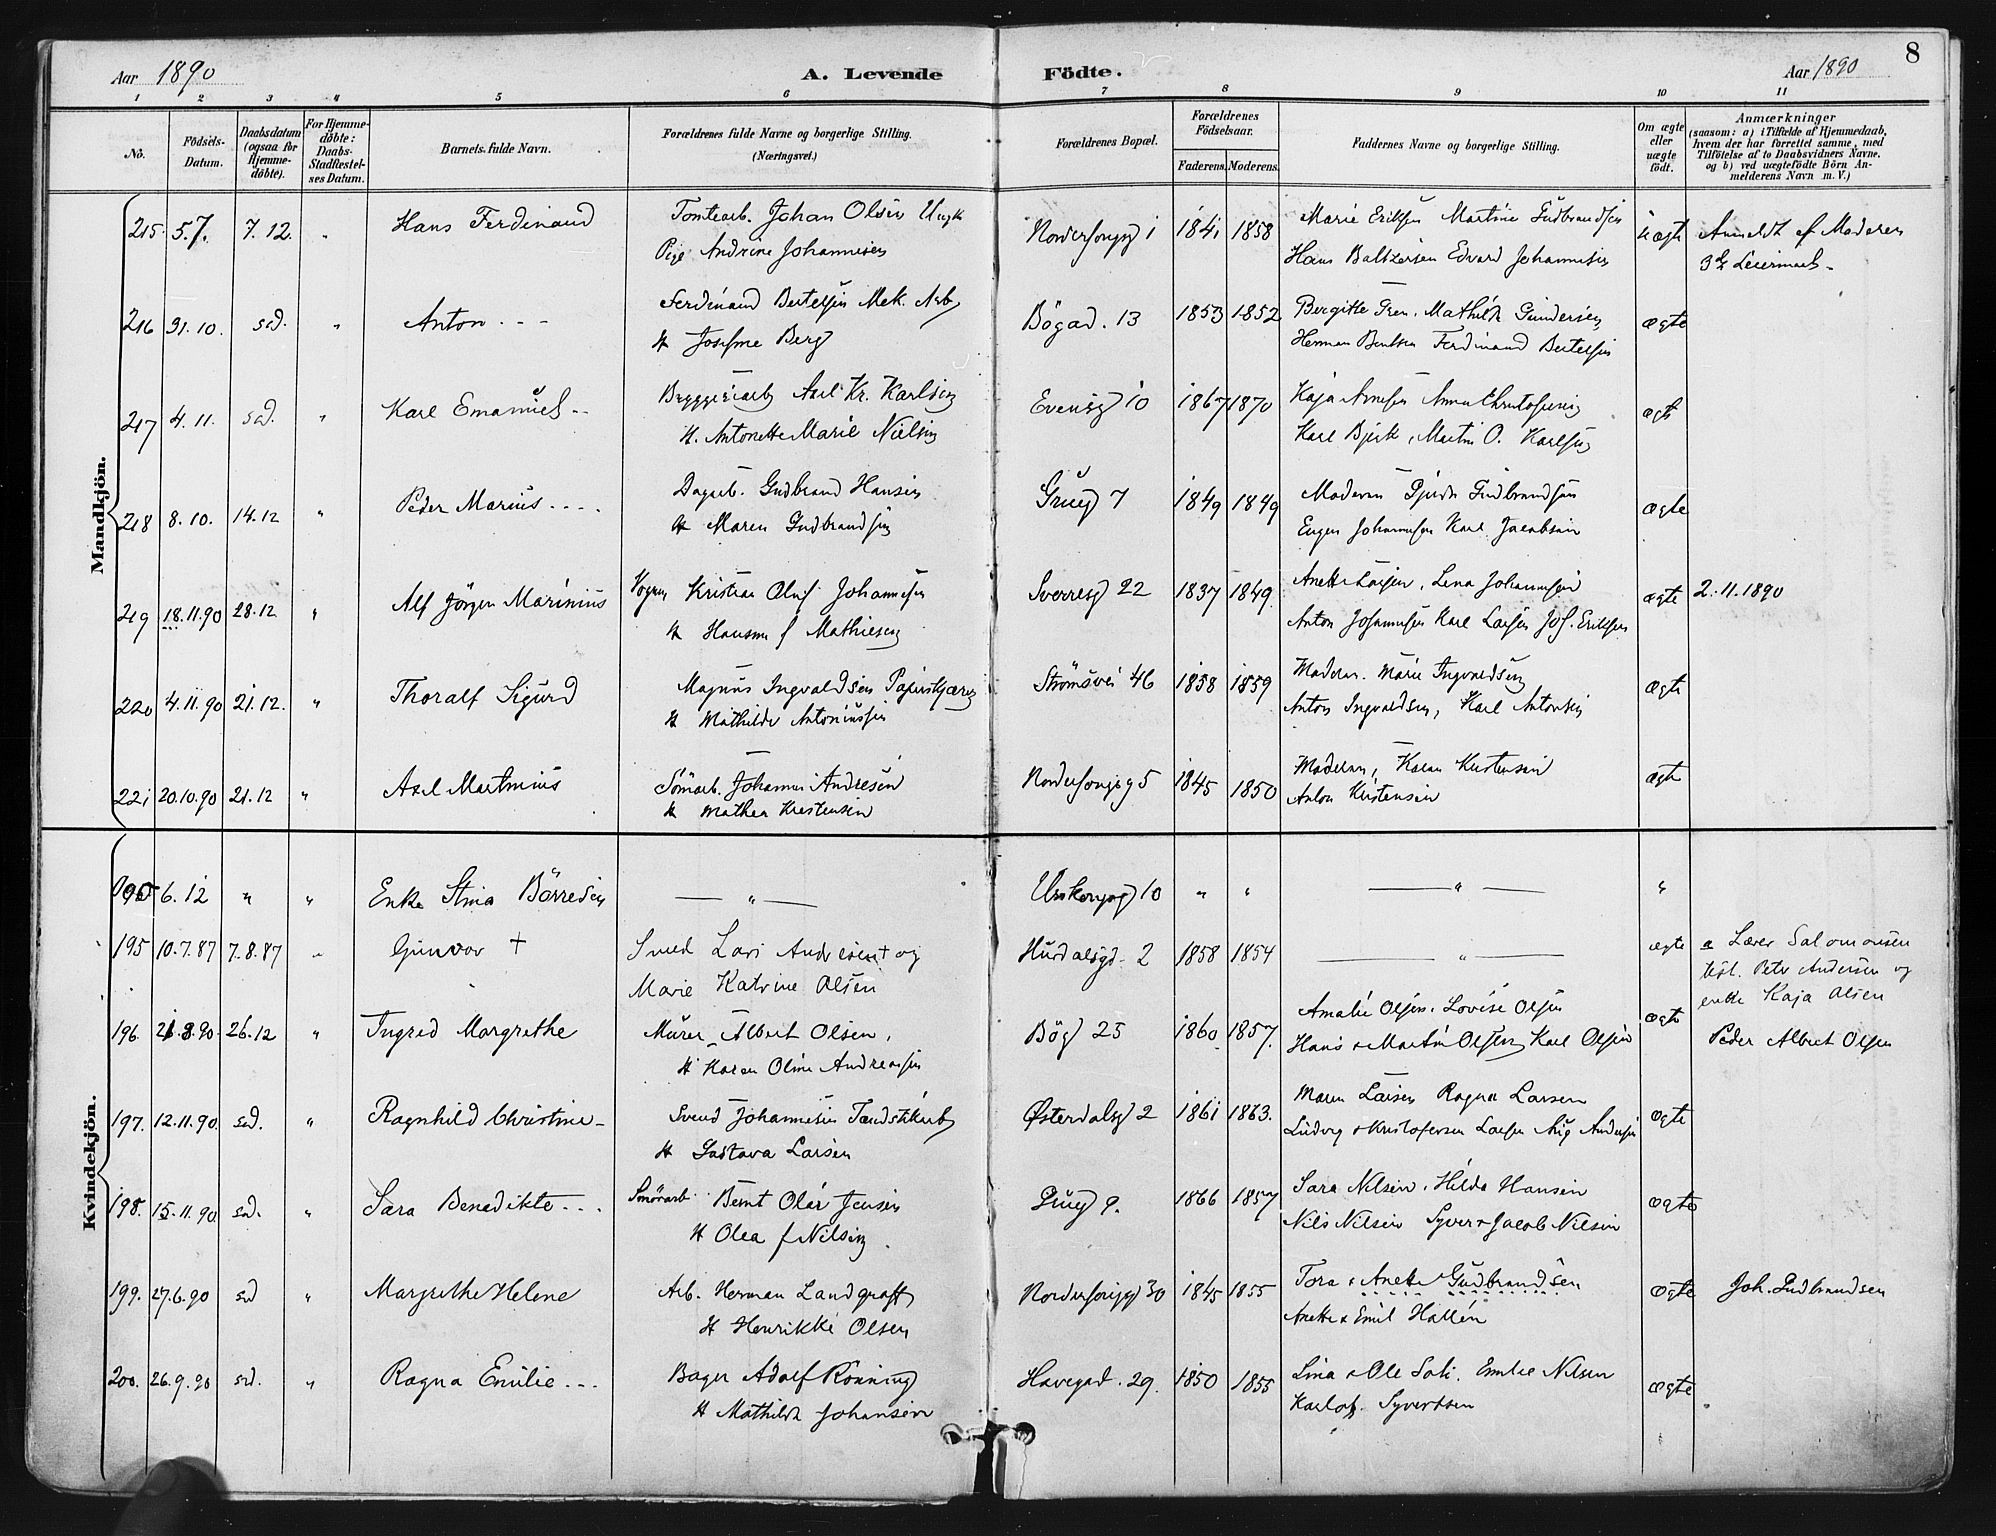 8
Aar 1890 A. Levende Födte. Aar 1890
1 2 3 4 5 6 7 8 9 10 11
No. Födsels-Datum. Daabsdatum (ogsaa for Hjemme-döbte). For Hjemme-döbte: Daabs-Stadfæstel-ses Datum. Barnets fulde Navn. Forældrenes fulde Navne og borgerlige Stilling. (Næringsvei.) Forældrenes Bopæl. Forældrenes Födselsaar. Faderens. Moderens. Faddernes Navne og borgerlige Stilling. Om ægte eller uægte födt. Anmærkninger (saasom: a) i Tilfælde af Hjemmedaab, hvem der har forrettet samme, med Tilföielse af to Daabsvidners Navne, og b) ved uægtefödte Börn An-melderens Navn m. V.)
Mandkjön.
215. 5.7. 7.12. " Hans Ferdinand Tomtearb. Johan Olsen Ungk 1841 1858 Marie Eriksen Martine Gudbrandsen uægte Anmeldt af Moderen
Pige Andrine Johannesen Hans Baltzersen Edvard Johannesen
216 31.10. sd. " Anton - - - Ferdinand Bertelsen Mek. Arb Bögad. 13 1853 1852 Mathilde Gundersen ægte
H Josefine Berg Herman Bentsen Ferdinand Bertelsen
217 4.11. sd. " Karl Emanuel - - Axel Kr. Karlsen 10 1867 1870 Kaja Arnesen Anna ægte
H. Antonette Marie Nielsen Karl Bjerk, Martin O. Karlsen
218 8.10. 14.12 " Peder Marius - - - - Dagarb. Gudbrand Hansen 7 1849 1849 Moderen Gudbrandsen ægte
H Maren Gudbrandsen Eugen Johannesen Karl Jacobsen
219 18.11.90 28.12 " Alf Jörgen Marinius Vogm. Kristian Oluf Johannesen Sverresg 22 1837 1849. Anette Larsen, Lena Johannesen ægte 2.11.1890
H f Mathiesen Anton Johannesen Karl Larsen Joh. Eriksen
220 4.11.90 21.12. " Thoralf Sigurd Magnus Ingvaldsen Strömsvei 46 1858 1859 Moderen. Marie Ingvaldsen ægte
H Mathilde Antoniussen Anton Ingvaldsen, Karl Antonsen
221 20.10.90 21.12 " Axel Martinius Johannes Andresen 5 1845 1850 Moderen, Karen Kristensen ægte
H Mathea Kristensen Anton Kristensen
Kvindekjön.
6.12 " " Enke Stina Börresen — " — Urskougsg 10 " " — " — "
195 10.7.87 7.8.87 " Gunvor † Smed Lars Andresen † og Hurdalsgd. 2 1858 1854 — " — ægte a Lærer Salomonsen
Marie Katrine Olsen test. Petr Andersen og
enke Kaja Olsen
196. 21.8.90. 26.12 " Ingred Margrethe Murer Albert Olsen, Bög 25 1860 1857. Amalie Olsen. Lovise Olsen ægte Peder Albert Olsen
H Karen Oline Andreassen Hans & Martin Olsen, Karl Olsen
197. 12.11.90. sd. " Ragnhild Christine - Svend Johannesen Tændstikarb Østerdalsg 2 1861 1863. Maren Larsen Ragna Larsen ægte
H Gustava Larsen Ludvig & Kristofersen Larsen Aug Andersen
198. 15.11.90 sd. " Sara Benedikte - - - Smörarb Bernt Olar Jensen 9. 1866 1857 Sara Nilsen. Hilda Hansen ægte
H Olea f Nilsen. Nils Nilsen Syver & Jacob Nilsen
199. 27.6.90 sd " Margrethe Helene Arb. Herman Landgraff 30 1845 1855 Tora & Anette Gudbrandsen ægte Joh. Gudbrandsen
H Henrikke Olsen Anette & Emil Hallén
200. 26.9.90 sd. " Ragna Emilie - - - Bager Adolf Rönning Havegad. 29. 1850 1855 Lina & Ole Emilie Nilsen ægte
H Mathilde Johansen Karlof Syvertsen